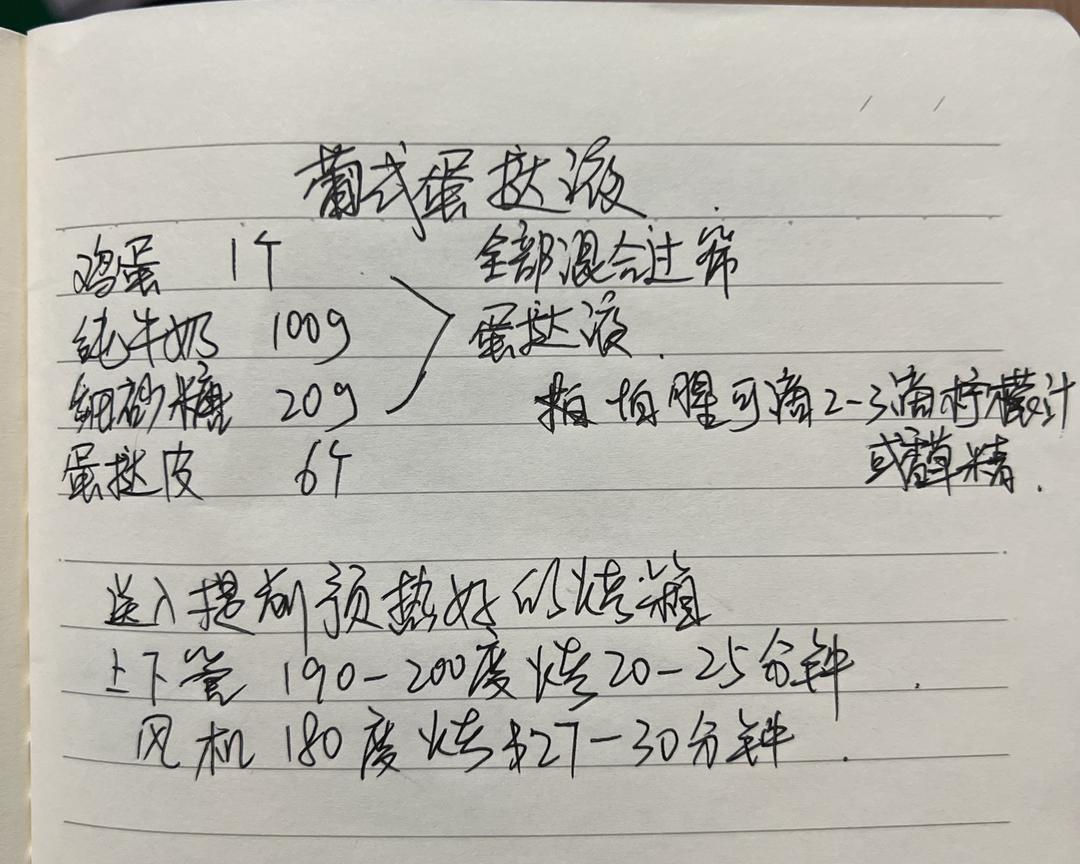 葡式蛋挞液
鸡蛋 1个 全部混合过筛
纯牛奶 100g 蛋挞液
细砂糖 20g 怕腥可滴2-3滴柠檬汁
蛋挞皮 6个 或香草精.
送入提前预热好的烤箱
上下管 190-200度烤20-25分钟.
风机 180度烤27-30分钟.